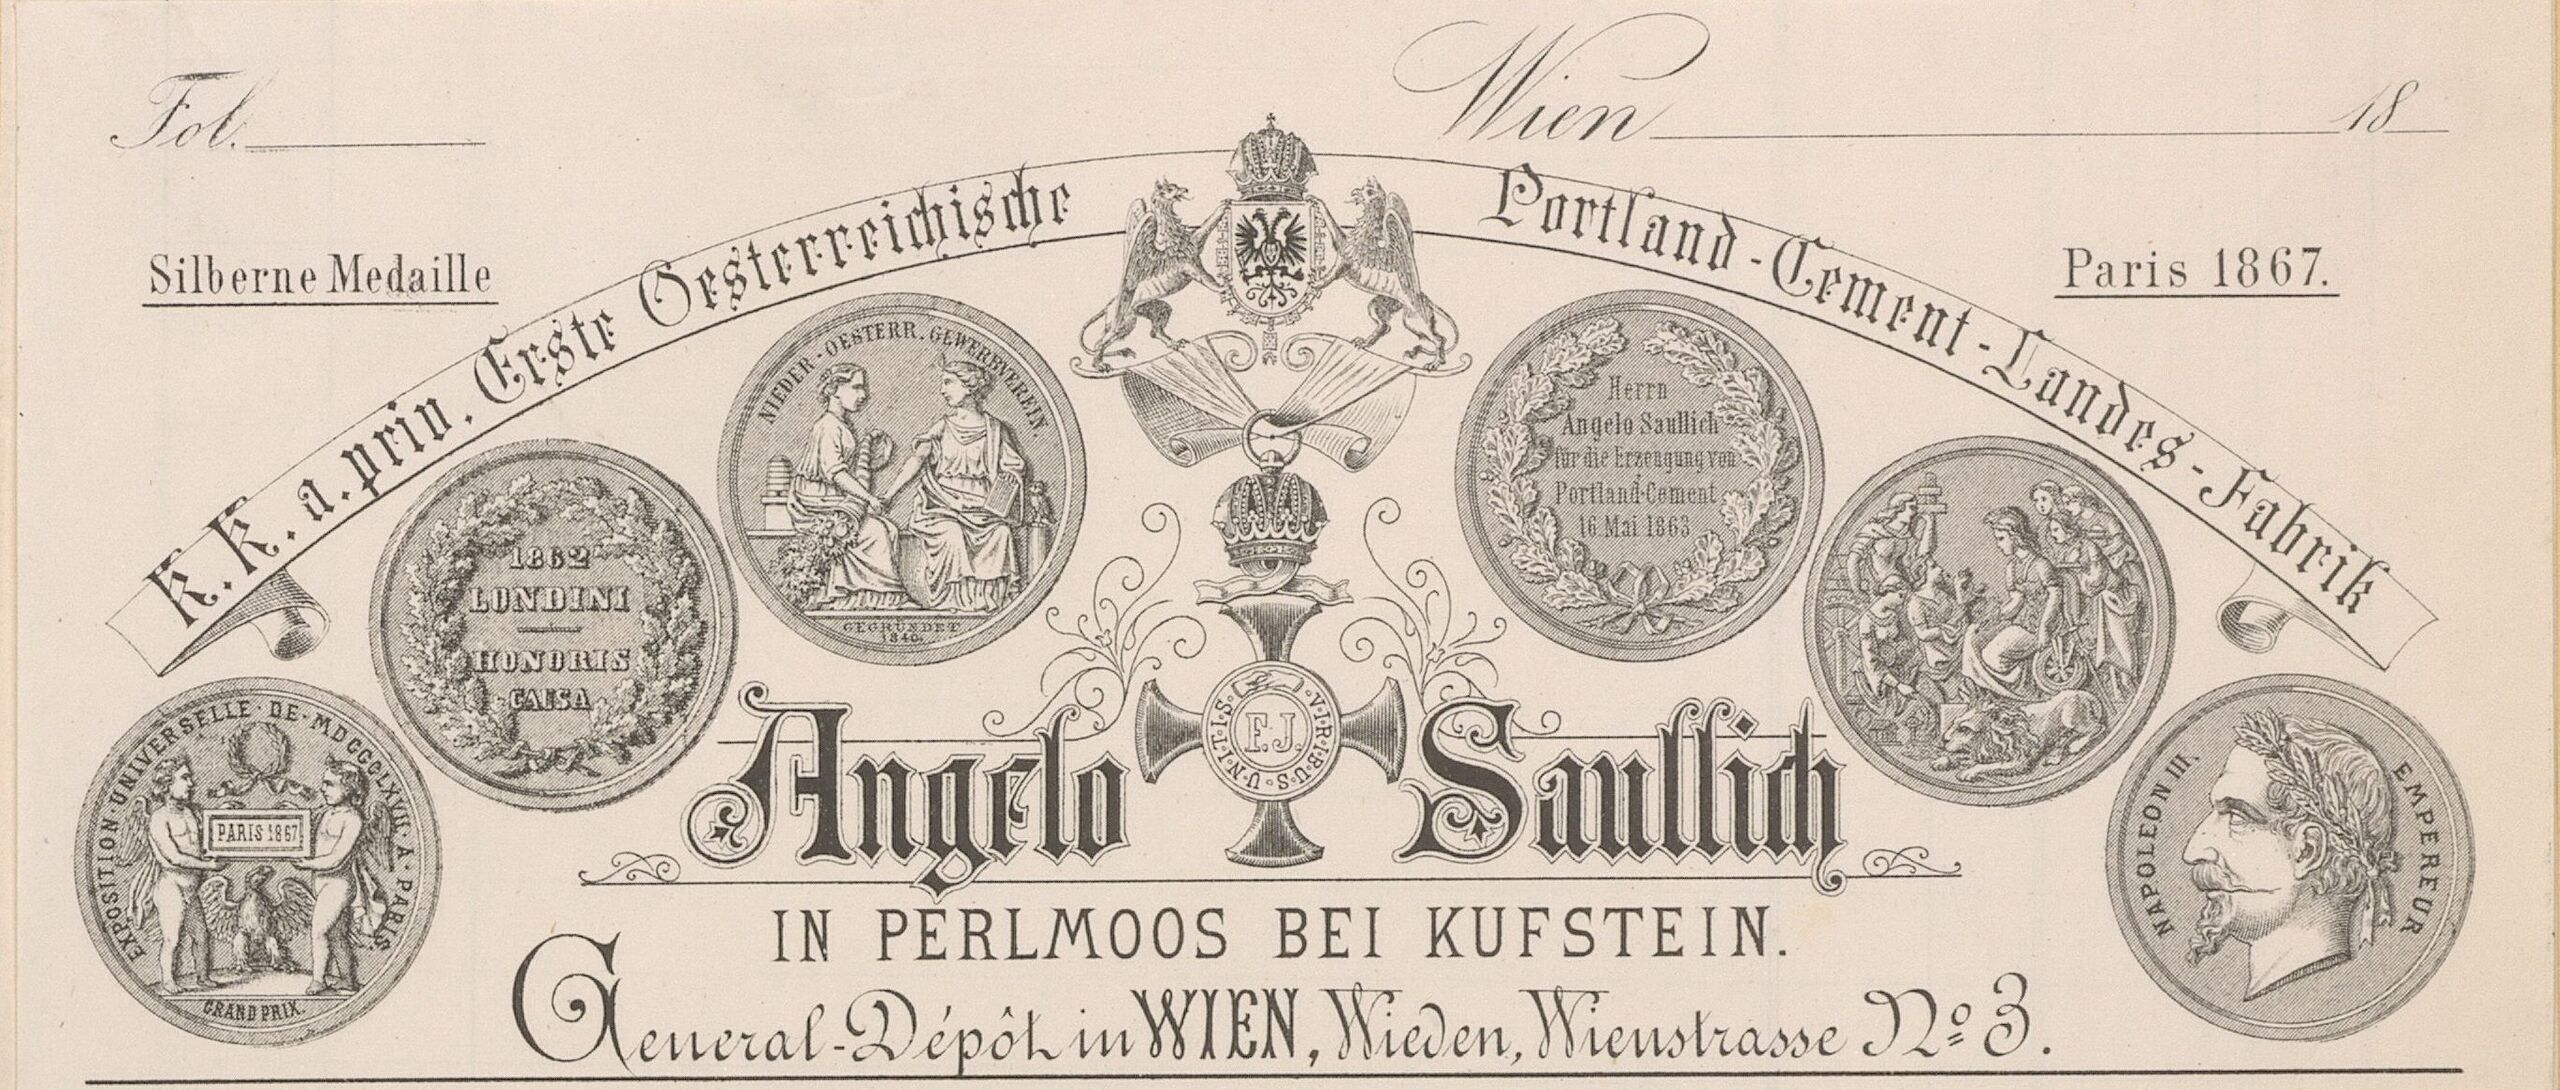 Fol.
Wien 18
Silberne Medaille
Paris 1867.
K. K. a. priv. Erste Oesterreichische Portland-Cement-Landes-Fabrik
NIEDER-OESTERR. GEWERBVEREIN.
GEGRÜNDET
1840.
Herrn
Angelo Saullich
für die Erzeugung von
Portland-Cement
16 Mai 1863
1862
LONDINI
HONORIS
CAUSA
EXPOSITION UNIVERSELLE · DE · MDCCCLXVII · A · PARIS
PARIS 1867
GRAND PRIX.
VIRIBUS UNITIS
F.J.
NAPOLEON III. EMPEREUR
Angelo Saullich
IN PERLMOOS BEI KUFSTEIN.
General-Dépôt in WIEN, Wieden, Wienstrasse No 3.